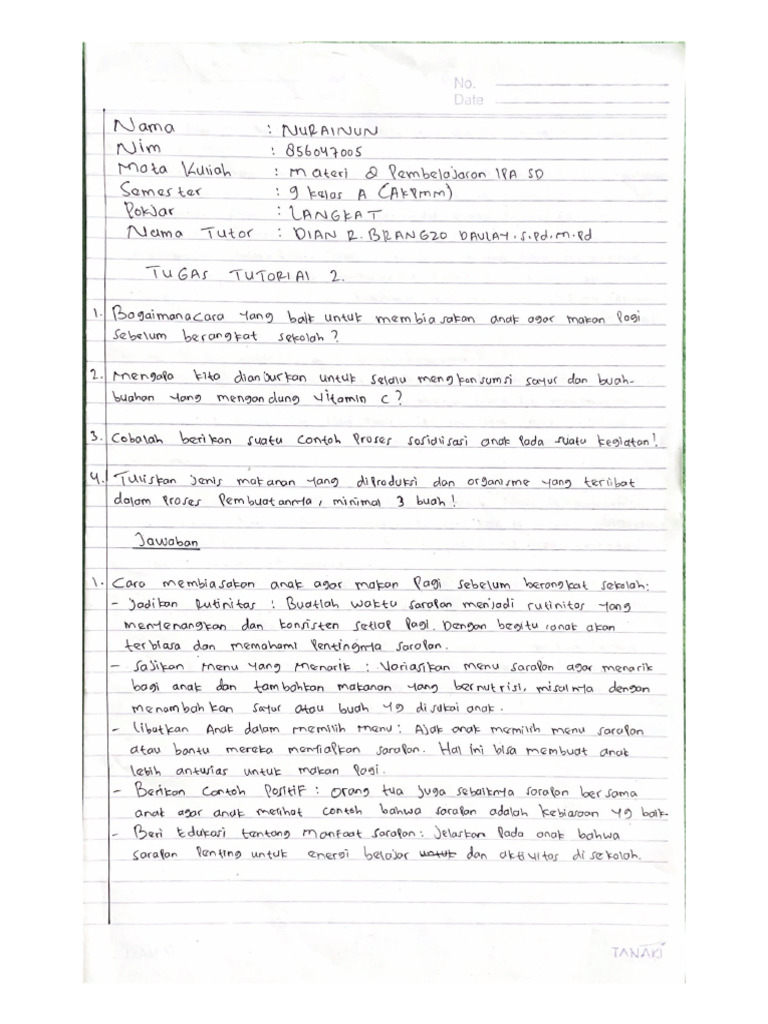 No.
Date
Nama : NURAINUN
Nim : 856047005
Mata Kuliah : Materi & Pembelajaran IPA SD
Semester : 9 kelas A (AKPMM)
Pokjar : LANGKAT
Nama Tutor : DIAN R. BRANGZO DAULAY.S.Pd.M.Pd
TUGAS TUTORIAl 2.
1. Bagaimanacara yang baik untuk membiasakan anak agar makan Pagi
sebelum berangkat sekolah?
2. Mengapa kita dianjurkan untuk selalu mengkonsumsi sayur dan buah-
buahan yang mengandung vitamin C?
3. Cobalah berikan suatu contoh Proses sosialisasi anak Pada suatu kegiatan!
4. Tuliskan jenis makanan yang diProduksi dan organisme yang terlibat
dalam Proses Pembuatannya, minimal 3 buah!
Jawaban
1. Cara membiasakan anak agar makan Pagi sebelum berangkat sekolah:
- Jadikan Rutinitas : Buatlah waktu sarapan menjadi rutinitas yang
menyenangkan dan konsisten setiap Pagi. Dengan begitu, anak akan
terbiasa dan memahami Pentingnya sarapan.
- Sajikan Menu yang Menarik : Variasikan menu sarapan agar menarik
bagi anak dan tambahkan makanan yang bernutrisi, misalnya dengan
menambahkan sayur atau buah yg disukai anak.
- Libatkan Anak dalam memilih menu : Ajak anak memilih menu sarapan
atau bantu mereka menyiapkan sarapan. Hal ini bisa membuat anak
lebih antusias untuk makan Pagi.
- Berikan Contoh Positif : Orang tua juga sebaiknya sarapan bersama
anak agar anak melihat contoh bahwa sarapan adalah kebiasaan yg baik.
- Beri Edukasi tentang Manfaat sarapan : Jelaskan Pada anak bahwa
sarapan Penting untuk energi belajar untuk dan aktivitas di sekolah.
TANAKI